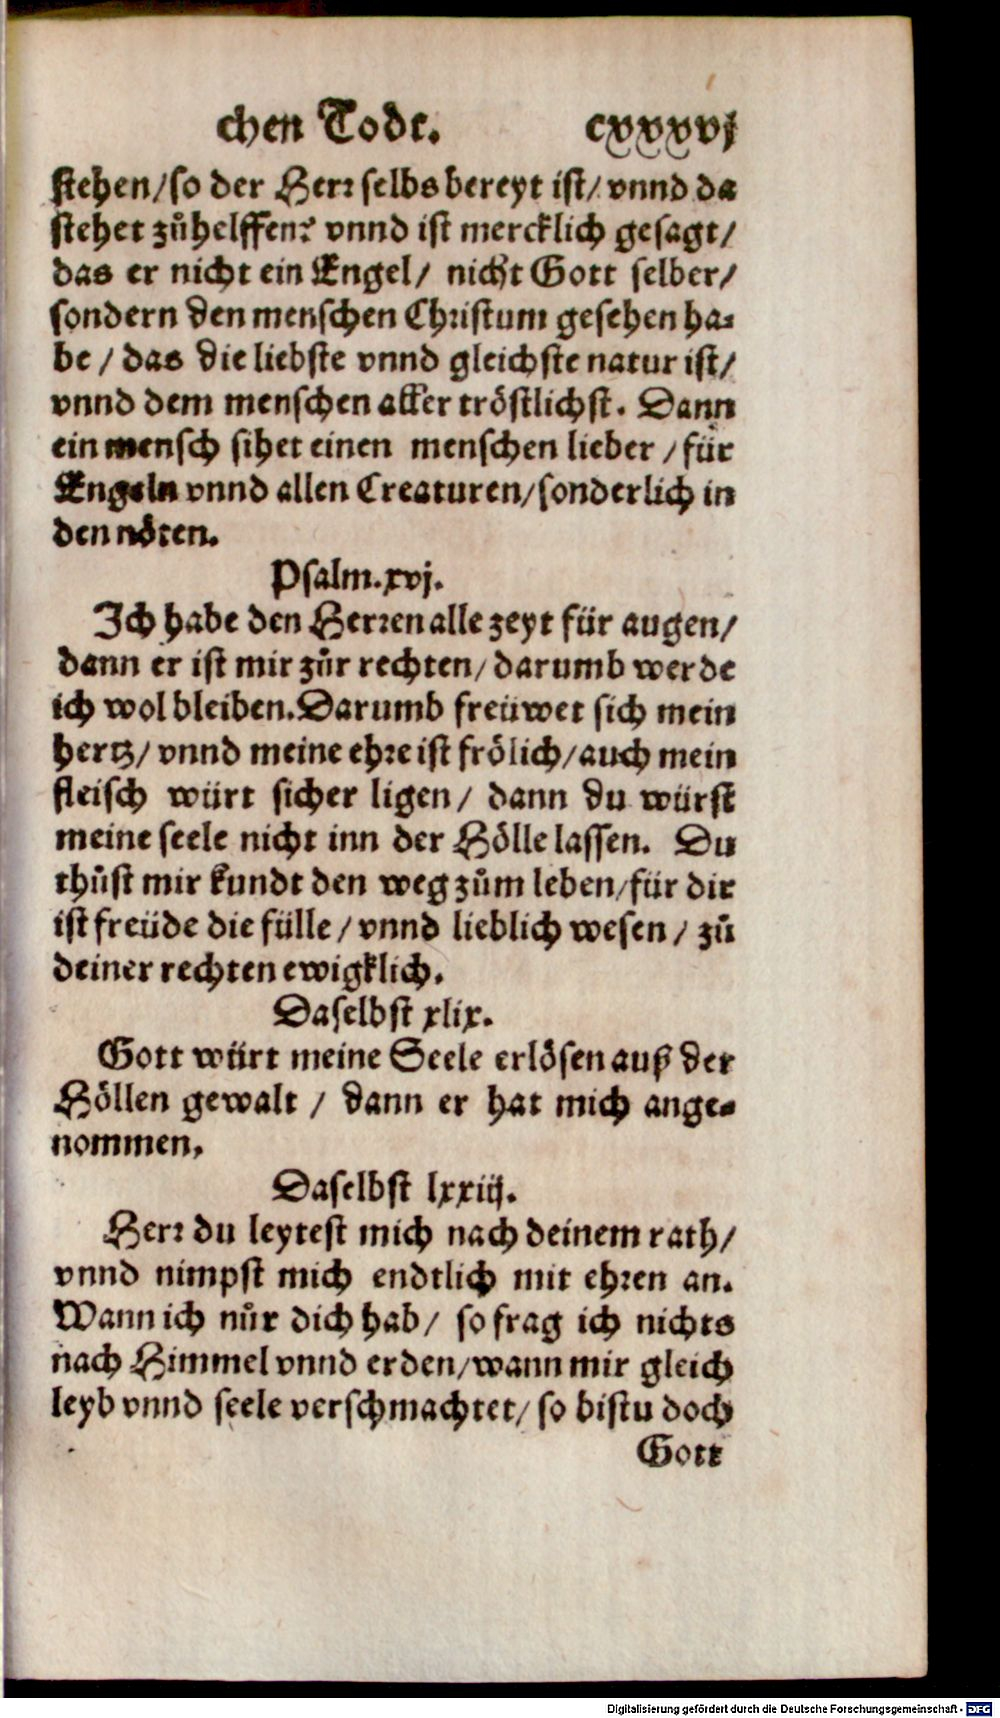 chen Todt. cxxxvj
stehen/so der Herr selbs bereyt ist/ vnnd da
stehet zůhelffen? vnnd ist mercklich gesagt/
das er nicht ein Engel/ nicht Gott selber/
sondern den menschen Christum gesehen ha-
be / das die liebste vnnd gleichste natur ist/
vnnd dem menschen aller tröstlichst. Dann
ein mensch sihet einen menschen lieber /für
Engeln vnnd allen Creaturen/sonderlich in
den nöten.
Psalm.xvj.
Ich habe den Herren alle zeyt für augen/
dann er ist mir zůr rechten/darumb werde
ich wol bleiben.Darumb freüwet sich mein
hertz/ vnnd meine ehre ist frölich/auch mein
fleisch würt sicher ligen/ dann du würst
meine seele nicht inn der Hölle lassen. Du
thůst mir kundt den weg zům leben/für dir
ist freüde die fülle/ vnnd lieblich wesen/ zů
deiner rechten ewigklich.
Daselbst xlix.
Gott würt meine Seele erlösen auß der
Höllen gewalt / dann er hat mich ange-
nommen.
Daselbst lxxiij.
Herr du leytest mich nach deinem rath/
vnnd nimpst mich endtlich mit ehren an.
Wann ich nůr dich hab/ so frag ich nichts
nach Himmel vnnd erden/wann mir gleich
leyb vnnd seele verschmachtet/ so bistu doch
Gott
Digitalisierung gefördert durch die Deutsche Forschungsgemeinschaft - DFG